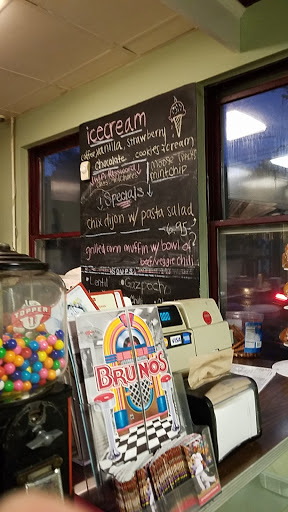 icecream
coffee, vanilla, strawberry
chocolate cookies n'cream
mint chip
Specials
chix dijon w/ pasta salad
6.95
grilled corn muffin w/ bowl of
beef/veggie chili
SOUPS
Lentil Gazpacho
TOPPER
VISA
BRUNO'S